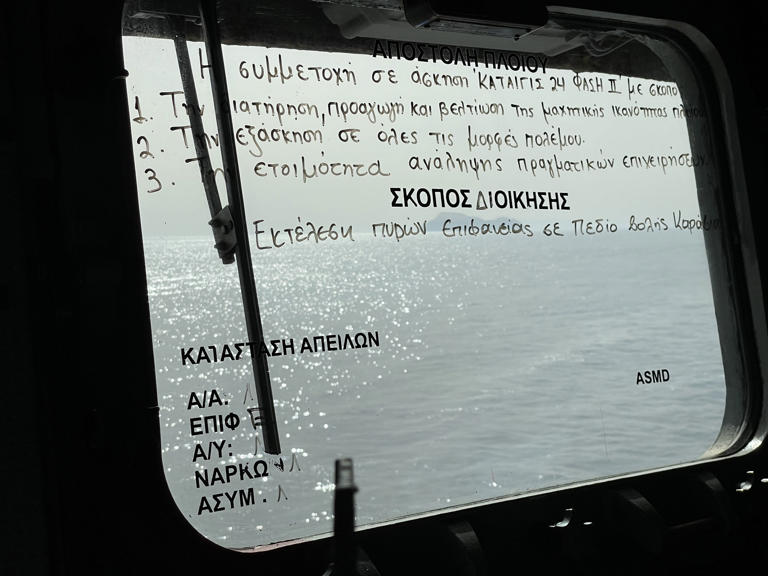 ΑΠΟΣΤΟΛΗ ΠΛΟΙΟΥ
Η συμμετοχή σε άσκηση ΚΑΤΑΙΓΙΣ 24 ΦΑSH II με σκοπό
1. Την διατήρηση, προαγωγή και βελτίωση της μαχητικής ικανότητας πλοίου
2. Την εξάσκηση σε όλες τις μορφές πολέμου.
3. Την ετοιμότητα ανάληψης πραγματικών επιχειρήσεων
ΣΚΟΠΟΣ ΔΙΟΙΚΗΣΗΣ
Εκτέλεση πυρών επιφανείας σε Πεδίο Βολής
ΚΑΤΑΣΤΑΣΗ ΑΠΕΙΛΩΝ
ASMD
Α/Α: Λ
ΕΠΙΦ
Α/Υ: Λ
ΝΑΡΚΩ Λ
ΑΣΥΜ. Λ